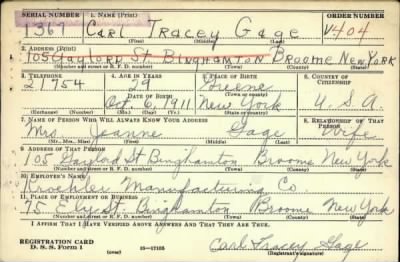 SERIAL NUMBER 1. NAME (Print) ORDER NUMBER
1367 Carl Tracey Gage V404
(First) (Middle) (Last)
2. ADDRESS (Print)
105 Gaylord St Binghamton Broome New York
(Number and street or R. F. D. number) (Town) (County) (State)
3. TELEPHONE 4. AGE IN YEARS 5. PLACE OF BIRTH 6. COUNTRY OF CITIZENSHIP
21754 29 Greene
DATE OF BIRTH (Town or county)
Oct. 6, 1911 New York U.S.A.
(Exchange) (Number) (Mo.) (Day) (Yr.) (State or country)
7. NAME OF PERSON WHO WILL ALWAYS KNOW YOUR ADDRESS 8. RELATIONSHIP OF THAT PERSON
Mrs. Joanne Gage Wife
(Mr., Mrs., Miss) (First) (Middle) (Last)
9. ADDRESS OF THAT PERSON
105 Gaylord St Binghamton Broome New York
(Number and street or R. F. D. number) (Town) (County) (State)
10. EMPLOYER'S NAME
Kroehler Manufacturing Co.
11. PLACE OF EMPLOYMENT OR BUSINESS
75 Ely St. Binghamton Broome New York
(Number and street or R. F. D. number) (Town) (County) (State)
I AFFIRM THAT I HAVE VERIFIED ABOVE ANSWERS AND THAT THEY ARE TRUE.
REGISTRATION CARD
D. S. S. Form 1 (over) 16—17105 Carl Tracey Gage
(Registrant's signature)